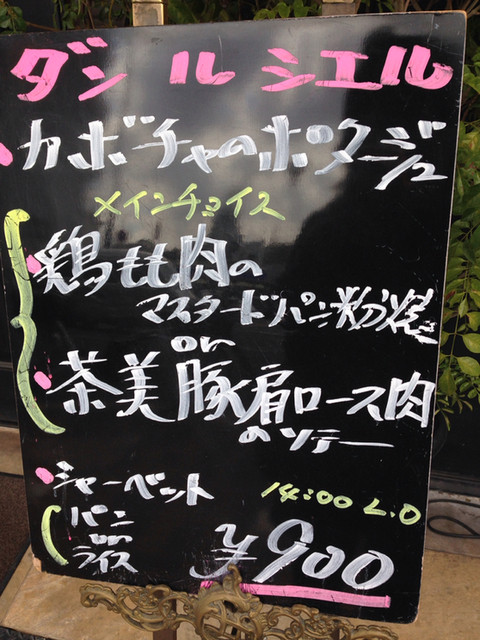 ダシルシエル
カボチャのポタージュ
メインチョイス
鶏もも肉の
マスタードパン粉焼
or
茶美豚肩ロース肉
のソテー
シャーベット
14:00 L.O
パン
or
ライス
¥900